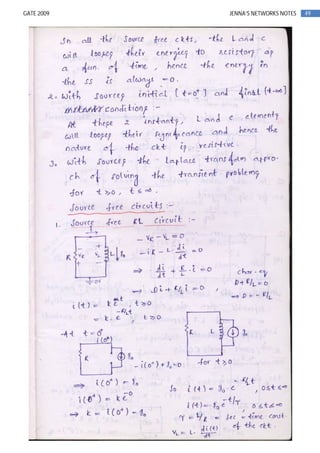 GATE 2009 JENNA'S NETWORKS NOTES 49
In all the source free ckts, the L and C
will looses their energies to resistors as
a fun. of time, hence the energy in
the SS is always = 0.
2. With Sources initial [t=0⁺] and final [t→∞]
conditions :-
At these 2 instants, L and C elements
will looses their significance and hence the
nature of the ckt is resistive.
3. With sources the Laplace transform appro-
ch of solving the transient problems
for t≥0, t≤∞.
Source free circuits :-
1. Source free RL Circuit :-
R VR VL L I₀
- VR - VL = 0
- iR - L di/dt = 0
⇒ di/dt + R/L . i = 0
⇒ Di + R/L i = 0 ,
char. eq
D + R/L = 0
⇒ D = - R/L
i(t) = k e , t≥0
= k. e^-Rt/L , t≥0
At t = 0⁺
i(0⁺)
R I₀
- i(0⁺) + I₀ = 0
R L I₀
for t≥0
⇒ i(0⁺) = I₀
i(0⁺) = k e⁻⁰
⇒ k = i(0⁺) = I₀
So i(t) = I₀ e^-Rt/L , 0≤t≤∞
i(t) = I₀ e^-t/τ , 0≤t≤∞
τ = L/R = sec = time const
of the ckt.
VL = L. di(t)/dt